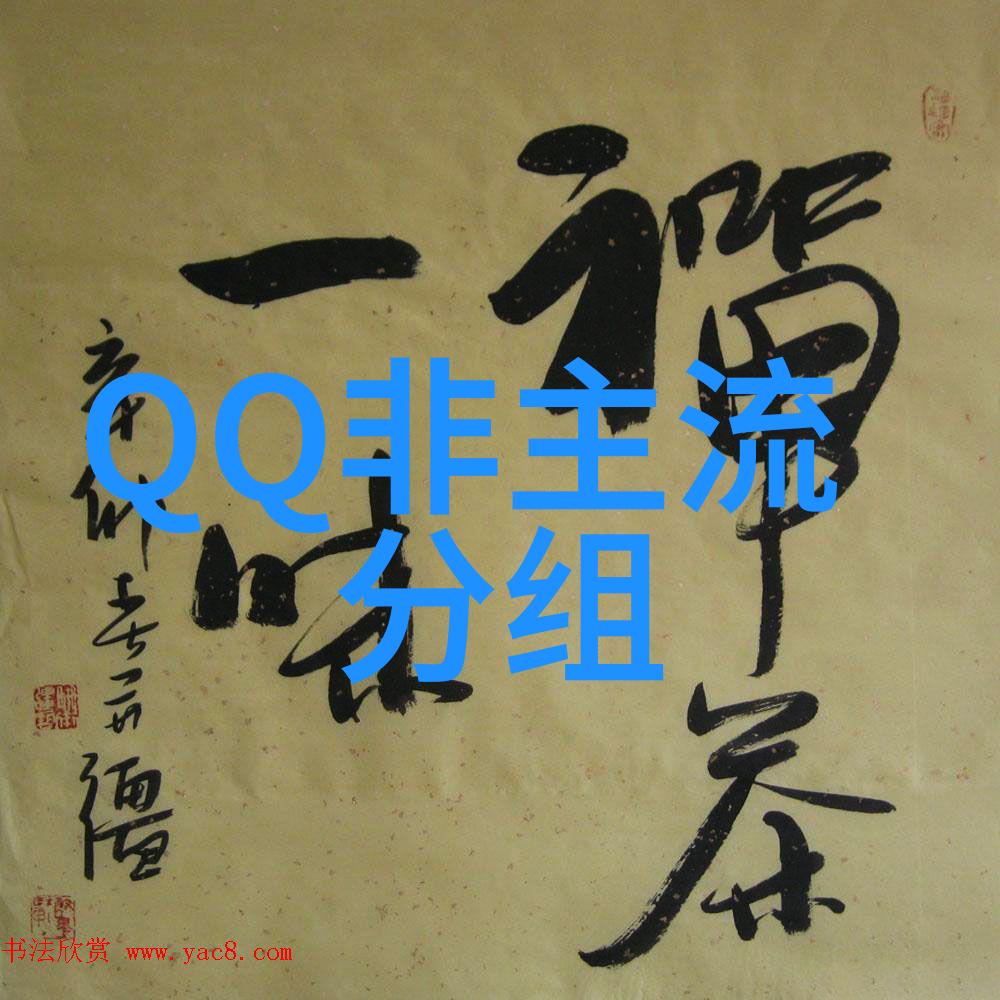 禅茶
一味
辛卯春一冊
QQ非主流
分组
书法欣赏 www.yac8.com